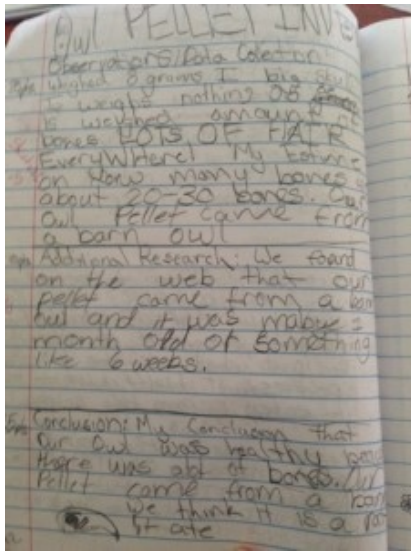 Owl PELLET INVE
Observations/Data Colection
weighed 8 grams I big skull
is weighed amount of
bones LOTS OF HAIR
EveryWhere! My
on how many bones
about 20-30 bones. Our
Owl Pellet came from
a barn owl
Additional Research: We found
on the web that our
pellet came from a barn
owl and it was mabye
month old of something
like 6 weeks.
Conclusion: My Conclusion that
Our Owl was healthy
there was alot of bones. Our
Pellet came from a barn
we think it is a
it ate